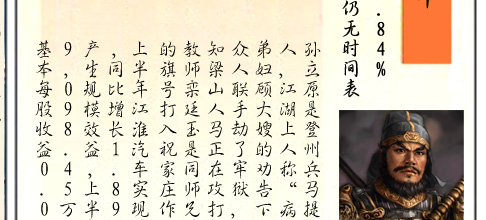 .84%
仍无时间表
孙立原是登州兵马提
人，江湖上人称“病
弟妇顾大嫂的劝告下
众人联手劫了牢狱，
知梁山人马正在攻打
教师栾廷玉是同师兄
的旗号打入祝家庄作
上半年江淮汽车实现
，同比增长1.89
产生规模效益，上半
9，098.45万
基本每股收益0.0